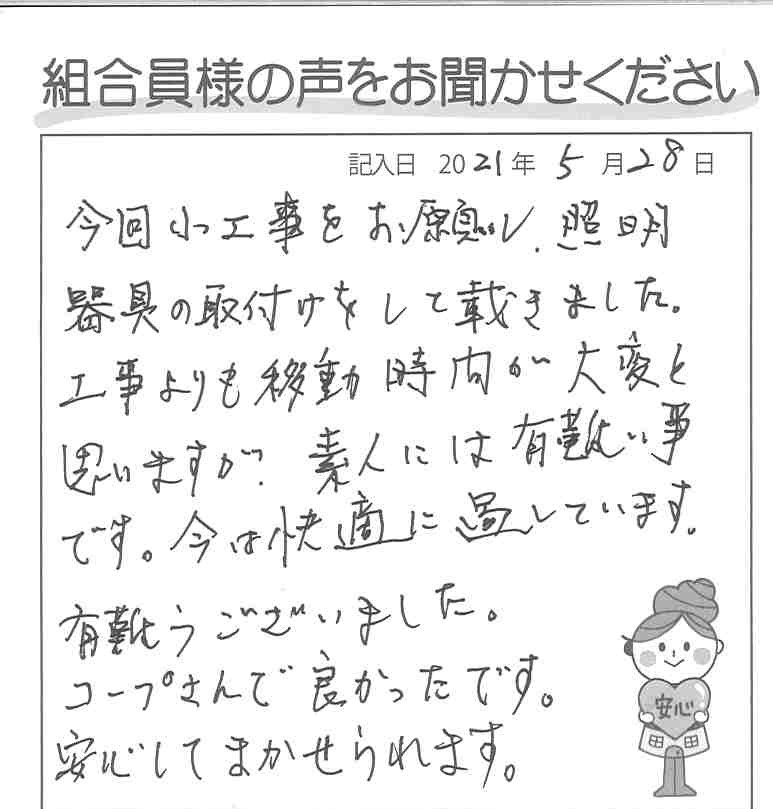 組合員様の声をお聞かせください
記入日 2021年 5月28日
今回小工事をお願いし、照明
器具の取付けをして戴きました。
工事よりも移動時間が大変と
思いますが、素人には有難い事
です。今は快適に過しています。
有難うございました。
コープさんで良かったです。
安心してまかせられます。
安心